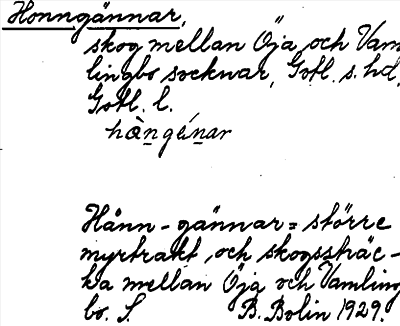 Honngännar,
skog mellan Öja och Vam-
lingbo socknar, Gotl. s. hd,
Gotl. l.
hàngénar
Hånn-gännar = större
myrtrakt, och skogssträc-
ka mellan Öja och Vamling-
bo. S. B. Bolin 1929.